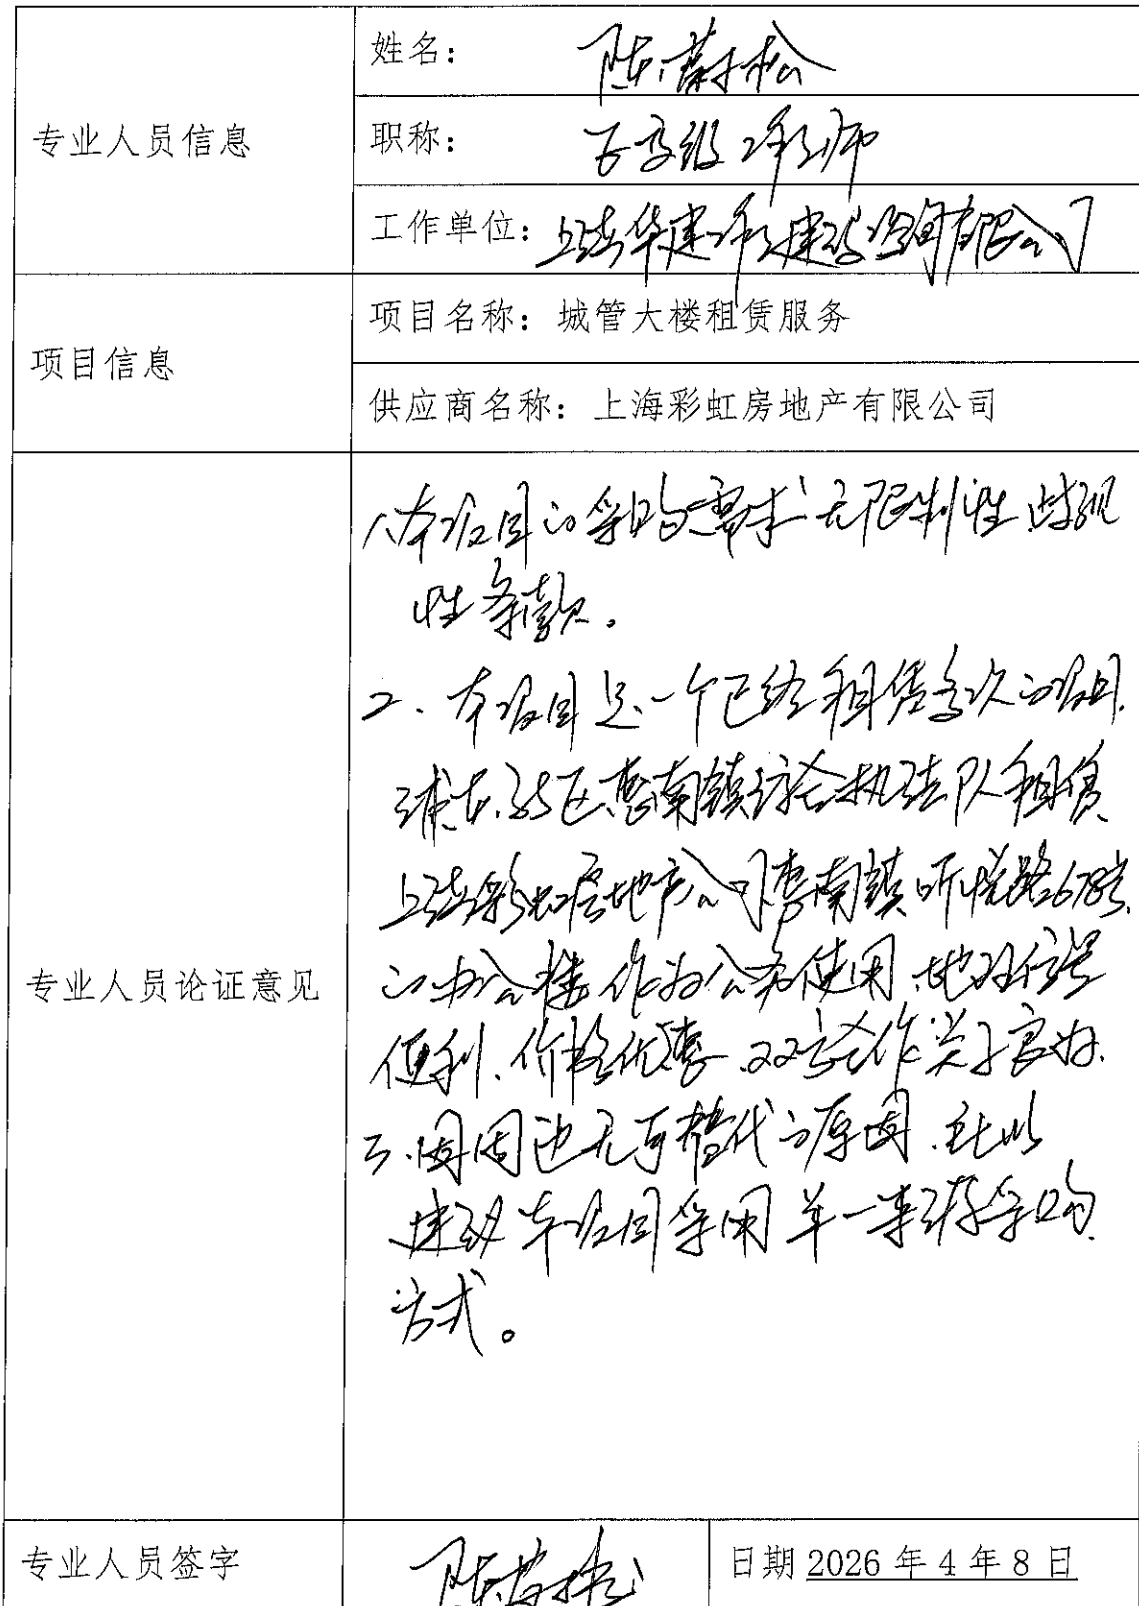 专业人员信息
姓名： 陈蔚松
职称： 高级工程师
工作单位： 上海华建工程建设咨询有限公司
项目信息
项目名称：城管大楼租赁服务
供应商名称：上海彩虹房地产有限公司
专业人员论证意见
1、本项目的采购需求无限制性歧视
性条款。
2、本项目是一个已经租赁多次的项目，
浦东新区惠南镇综合执法队租赁
上海彩虹房地产公司惠南镇听悦路678号
的办公楼作为公务使用，地理位置
便利、价格优惠、双方合作关系良好。
3、因周边无可替代的房源，
建议本项目采用单一来源采购
方式。
专业人员签字
陈蔚松
日期 2026 年 4 年 8 日